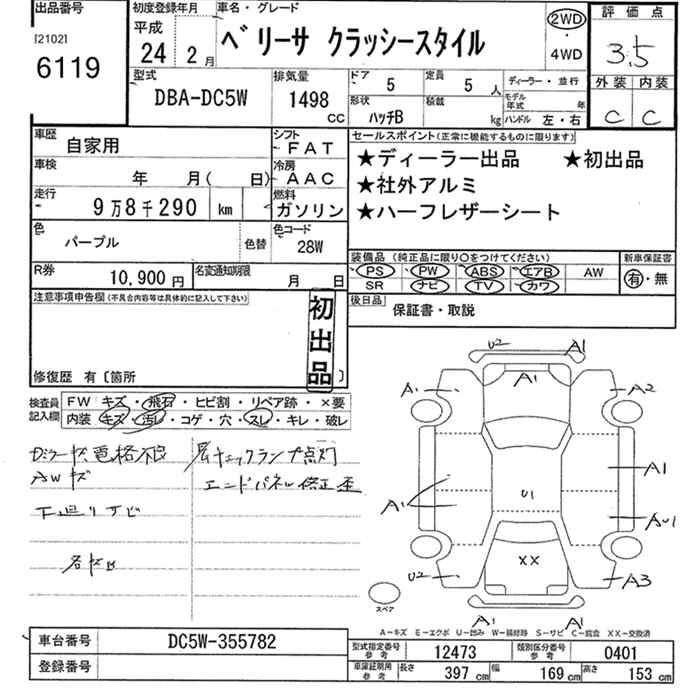 出品番号
[2102]
6119
初度登録年月
平成
24 2 月
車名・グレード
ベリーサ クラッシースタイル
2WD
・
4WD
評価点
3.5
外装 内装
C C
型式
DBA-DC5W
排気量
1498
CC
ドア
5
定員
5 人
形状
ハッチB
積載
kg
ディーラー・並行
モデル年式 年
ハンドル 左・右
車歴
自家用
車検
年 月( 日)
走行
9万8千290 km
色
パープル
色替
シフト
FAT
冷房
AAC
燃料
ガソリン
色コード
28W
セールスポイント(正常に機能するものに限ります)
★ディーラー出品 ★初出品
★社外アルミ
★ハーフレザーシート
R券
10,900円
名変通知期限
月 日
装備品 (純正品に限り○をつけてください)
PS PW ABS エアB AW
SR ナビ TV カワ
新車保証書
有・無
後日品
保証書・取説
注意事項申告欄(不具合内容等は具体的に記入して下さい)
初出品
修復歴 有〔箇所 〕
検査員記入欄
FW キズ・飛石・ヒビ割・リペア跡・×要
内装 キズ・汚レ・コゲ・穴・スレ・キレ・破レ
電格不良
AWキズ
下廻りサビ
チェックランプ点灯
エンドパネル修正歪
U2 A1
A1
A A2
A1
A1
U1
AU1
XX
U2 A3
A1 A1
スペア
A-キズ E-エクボ U-凹み W-補修跡 S-サビ C-腐食 XX-交換済
車台番号
DC5W-355782
登録番号
型式指定番号 参考
12473
類別区分番号 参考
0401
車庫証明用 参考
長さ 397 cm 幅 169 cm 高さ 153 cm